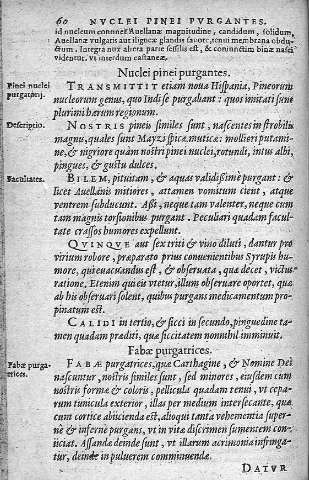 60 NVCLEI PINEI PVRGANTES.
id nucleum continet Auellanæ magnitudine, candidum, solidum,
Auellanæ vulgaris aut iliginæ glandis sapore, tenui membrana obdu-
ctum. Integra nux altera parte sessilis est, & coniunctim binæ nasci
videntur, vt interdum castaneæ.
Nuclei pinei purgantes.
Pinei nuclei
purgatorij.
TRANSMITTIT etiam noua Hispania, Pineorum
nucleorum genus, quo Indi se purgabant: quos imitati sunt
plurimi harum regionum.
Descriptio.
NOSTRIS pineis similes sunt, nascentes in strobilis
magnis, quales sunt Mayzi spicæ maticæ: molliori putami-
ne, & nigriore quàm nostri pinei nuclei, rotundi, intus albi,
pingues, & gustu dulces.
Facultates.
BILEM, pituitam, & aquas validissimè purgant: &
licet Auellanis mitiores, attamen vomitum cient, atque
ventrem subducunt. Assi, neque tam valenter, neque cum
tam magnis torsionibus purgant. Peculiari quadam facul-
tate crassos humores expellunt.
QVINQVE aut sex triti & vino diluti, dantur pro
virium robore, præparato prius conuenientibus Syrupis hu-
more, qui euacuandus est, & obseruata, qua decet, victus
ratione, Etenim quicis vtetur, illum obseruare oportet, quæ
ab his obseruari solent, quibus purgans medicamentum pro-
pinatum est.
CALIDI in tertio, & sicci in secundo, pinguedine ta-
men quadam præditi, quæ siccitatem nonnihil imminuit.
Fabæ purgatrices.
Fabæ purga-
trices.
FABÆ purgatrices, quæ Carthagine, & Nomine Dei
nascuntur, nostris similes sunt, sed minores, eiusdem cum
nostris formæ & coloris, pellicula quadam tenui, vt ceparum
tunicula exterior, illas per medium intersecante, quæ
cum cortice abiicienda est, alioqui tanta vehementia super-
nè & infernè purgans, vt in vitæ discrimen sumentem con-
iiciat. Assandæ deinde sunt, vt illarum acrimonia infringa-
tur, deinde in puluerem comminuendæ.
DATVR